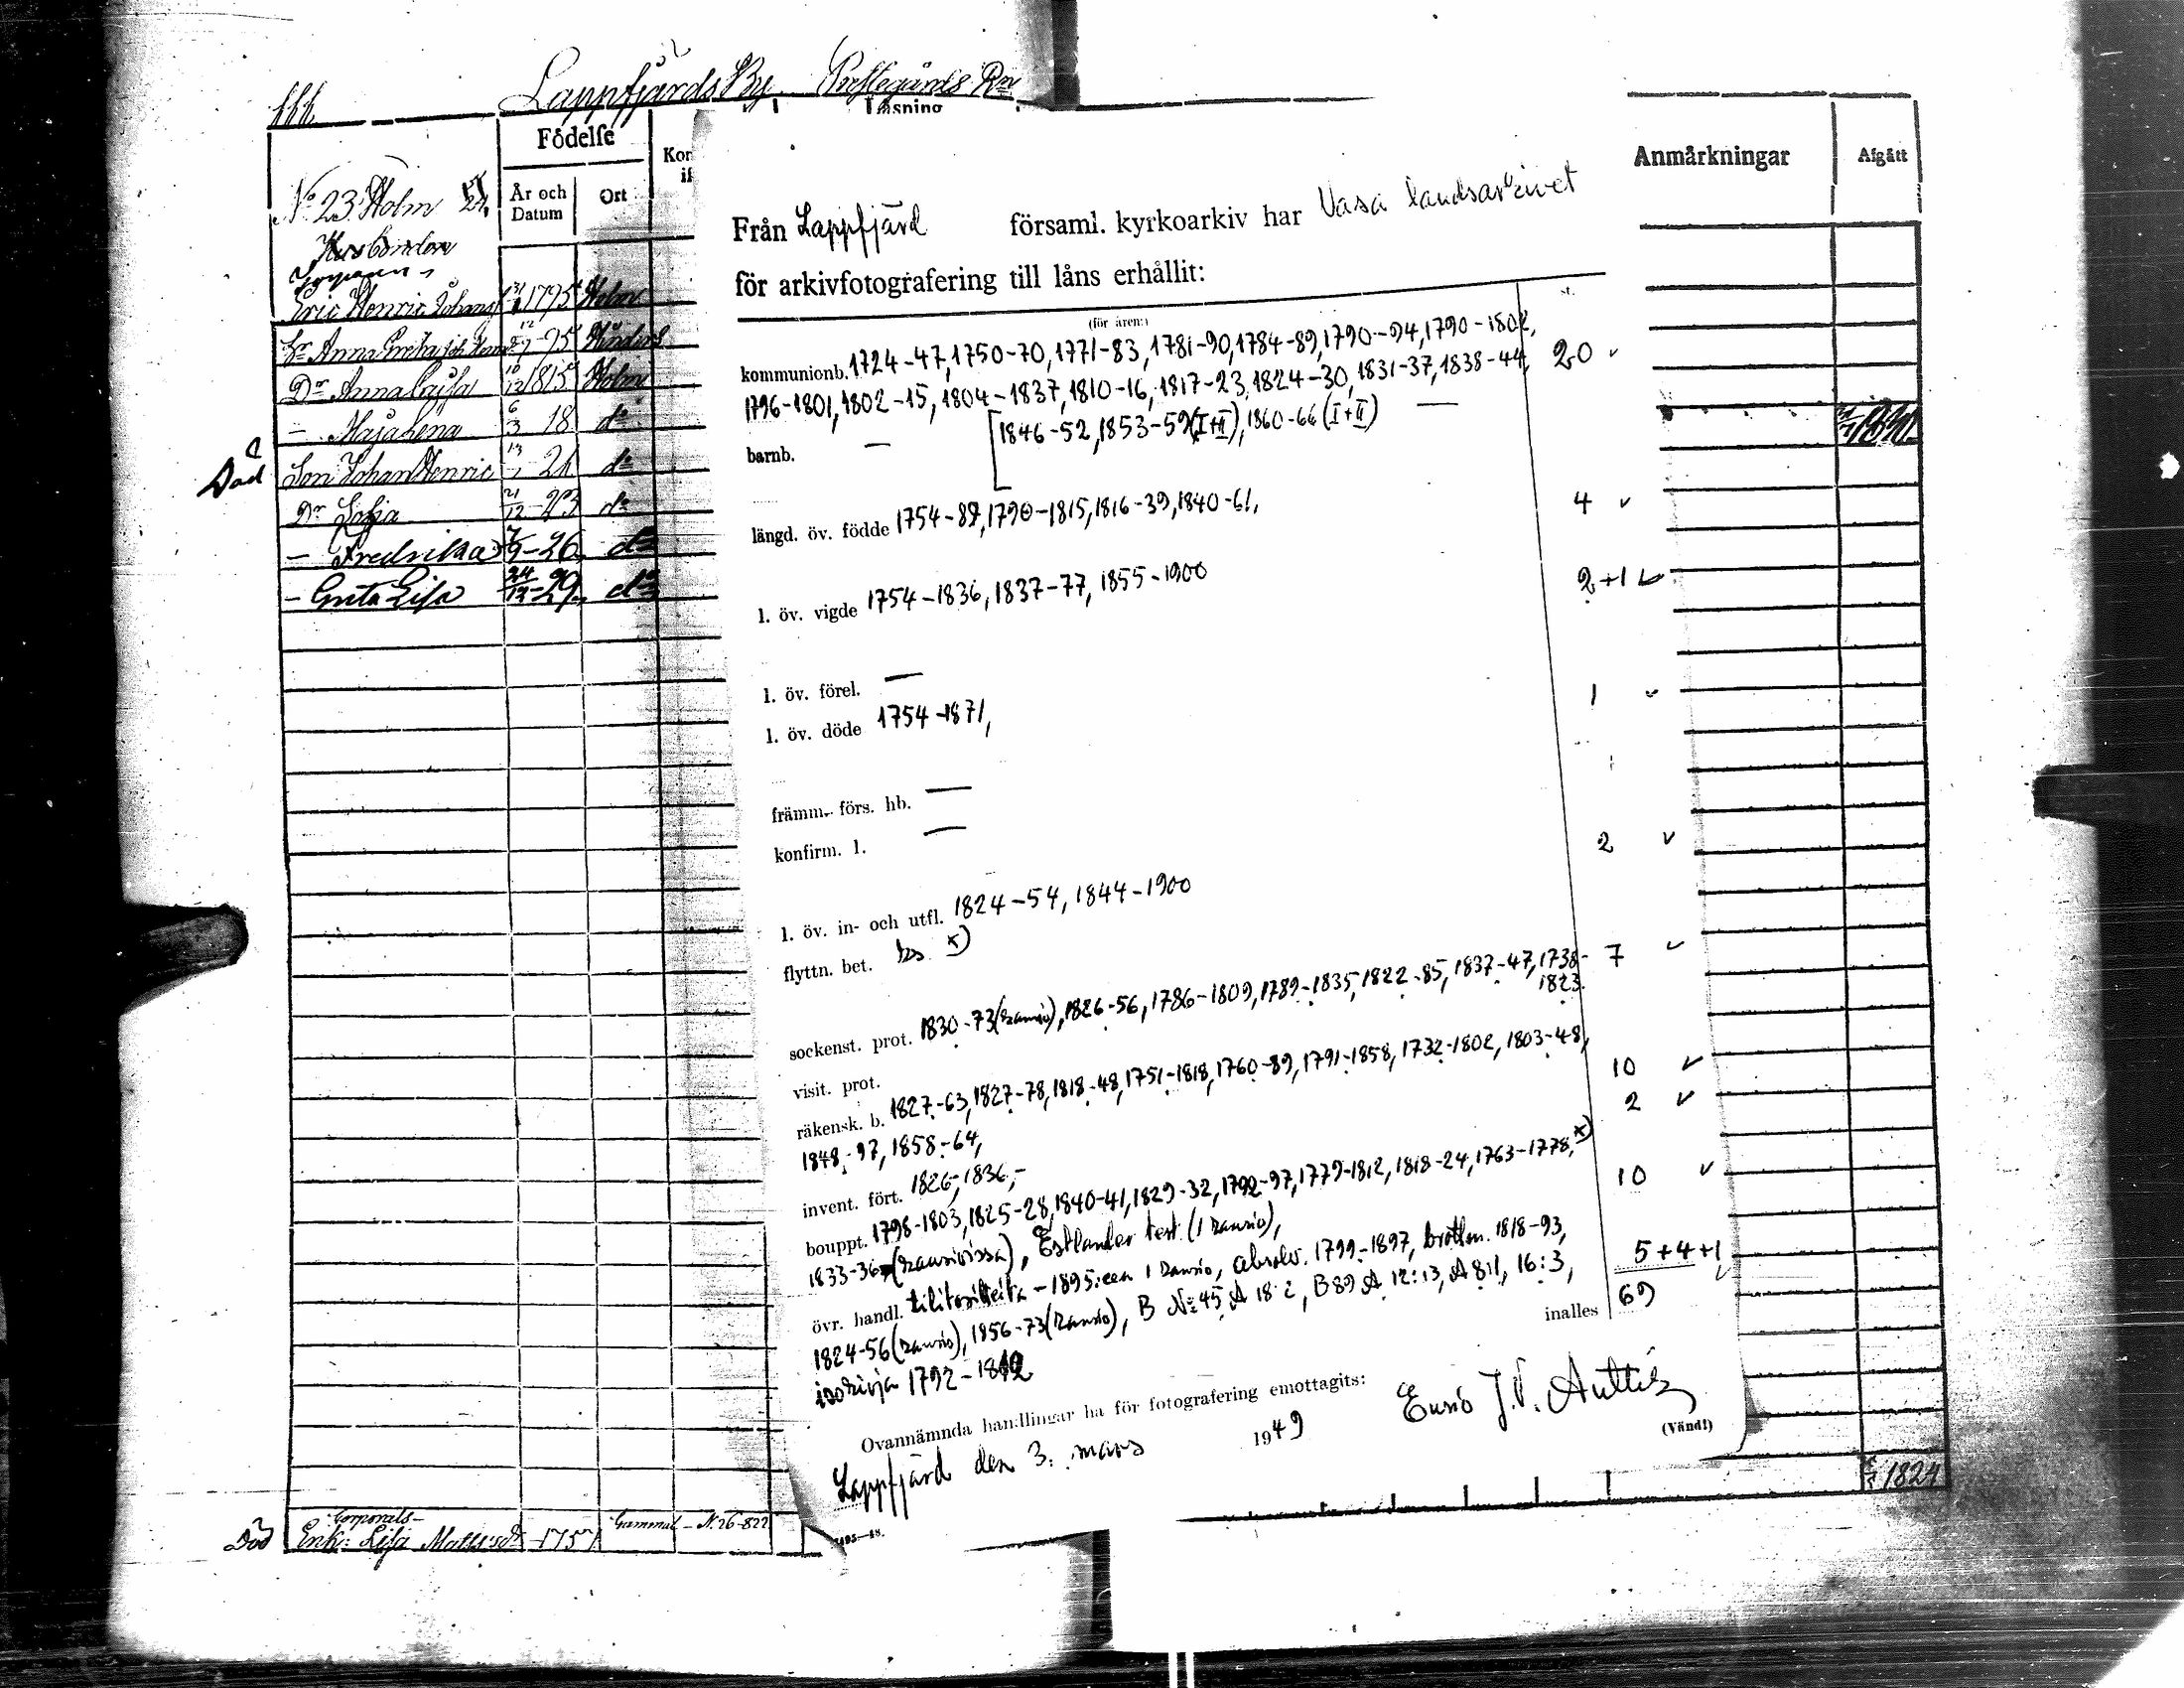 Lappfjärds By Prestegårds Rn
Läsning
Födelse
År och Datum
Ort
Anmärkningar
Afgått
No 23 Holm
Husbonden
Eric Henric Johanss 1795 Holm
Hr Anna Greta -95
Dr Anna Cajsa 10/12 1815 Holm
- Maja Lena 6/3 18 do
Död Son Johan Henric 24 do
Dr Sofia 21/12 -23 do
- Fredrika 7/9 -26 do
- Greta Lisa 24/12 -29 do
1830
Corporals-
Död Enk: Lisa Mattsdr -1757 Gammal - N. 26-822
1824
Från Lappfjärd församl. kyrkoarkiv har Vasa landsarkivet
för arkivfotografering till låns erhållit:
(för åren:)
st.
kommunionb. 1724-47, 1750-70, 1771-83, 1781-90, 1784-89, 1790-94, 1790-1802, 20
1796-1801, 1802-15, 1804-1837, 1810-16, 1817-23, 1824-30, 1831-37, 1838-44,
[1846-52, 1853-59 (I+II), 1860-66 (I+II) —
barnb. —
längd. öv. födde 1754-89, 1790-1815, 1816-39, 1840-61, 4
l. öv. vigde 1754-1836, 1837-77, 1855-1900 2+1
l. öv. förel. —
l. öv. döde 1754-1871, 1
främm. förs. hb. —
konfirm. l. —
l. öv. in- och utfl. 1824-54, 1844-1900 2
flyttn. bet. x)
sockenst. prot. 1830-73 (kansio), 1826-56, 1786-1809, 1789-1835, 1822-85, 1837-47, 1738- 7
1823.
visit. prot.
räkensk. b. 1827-63, 1827-78, 1818-48, 1751-1818, 1760-89, 1791-1858, 1732-1802, 1803-48, 10
1848-97, 1858-64,
invent. fört. 1826-, 1836,- 2
bouppt. 1798-1803, 1825-28, 1840-41, 1829-32, 1792-97, 1779-1812, 1818-24, 1763-1778, x) 10
1833-36 (kansioissa), Estlander test. (1 kansio),
övr. handl. tilitositteita -1895:een 1 kansio, absolv. 1799-1897, brottm. 1818-93, 5+4+1
1824-56 (kansio), 1856-73 (kansio), B No 45 A 18:2, B89 A 12:13, A 8:1, 16:3,
1792-1842
inalles 69
Ovannämnda handlingar ha för fotografering emottagits:
Lappfjärd den 3. mars 1949
Eunö J.V. Anttila
(Vänd!)